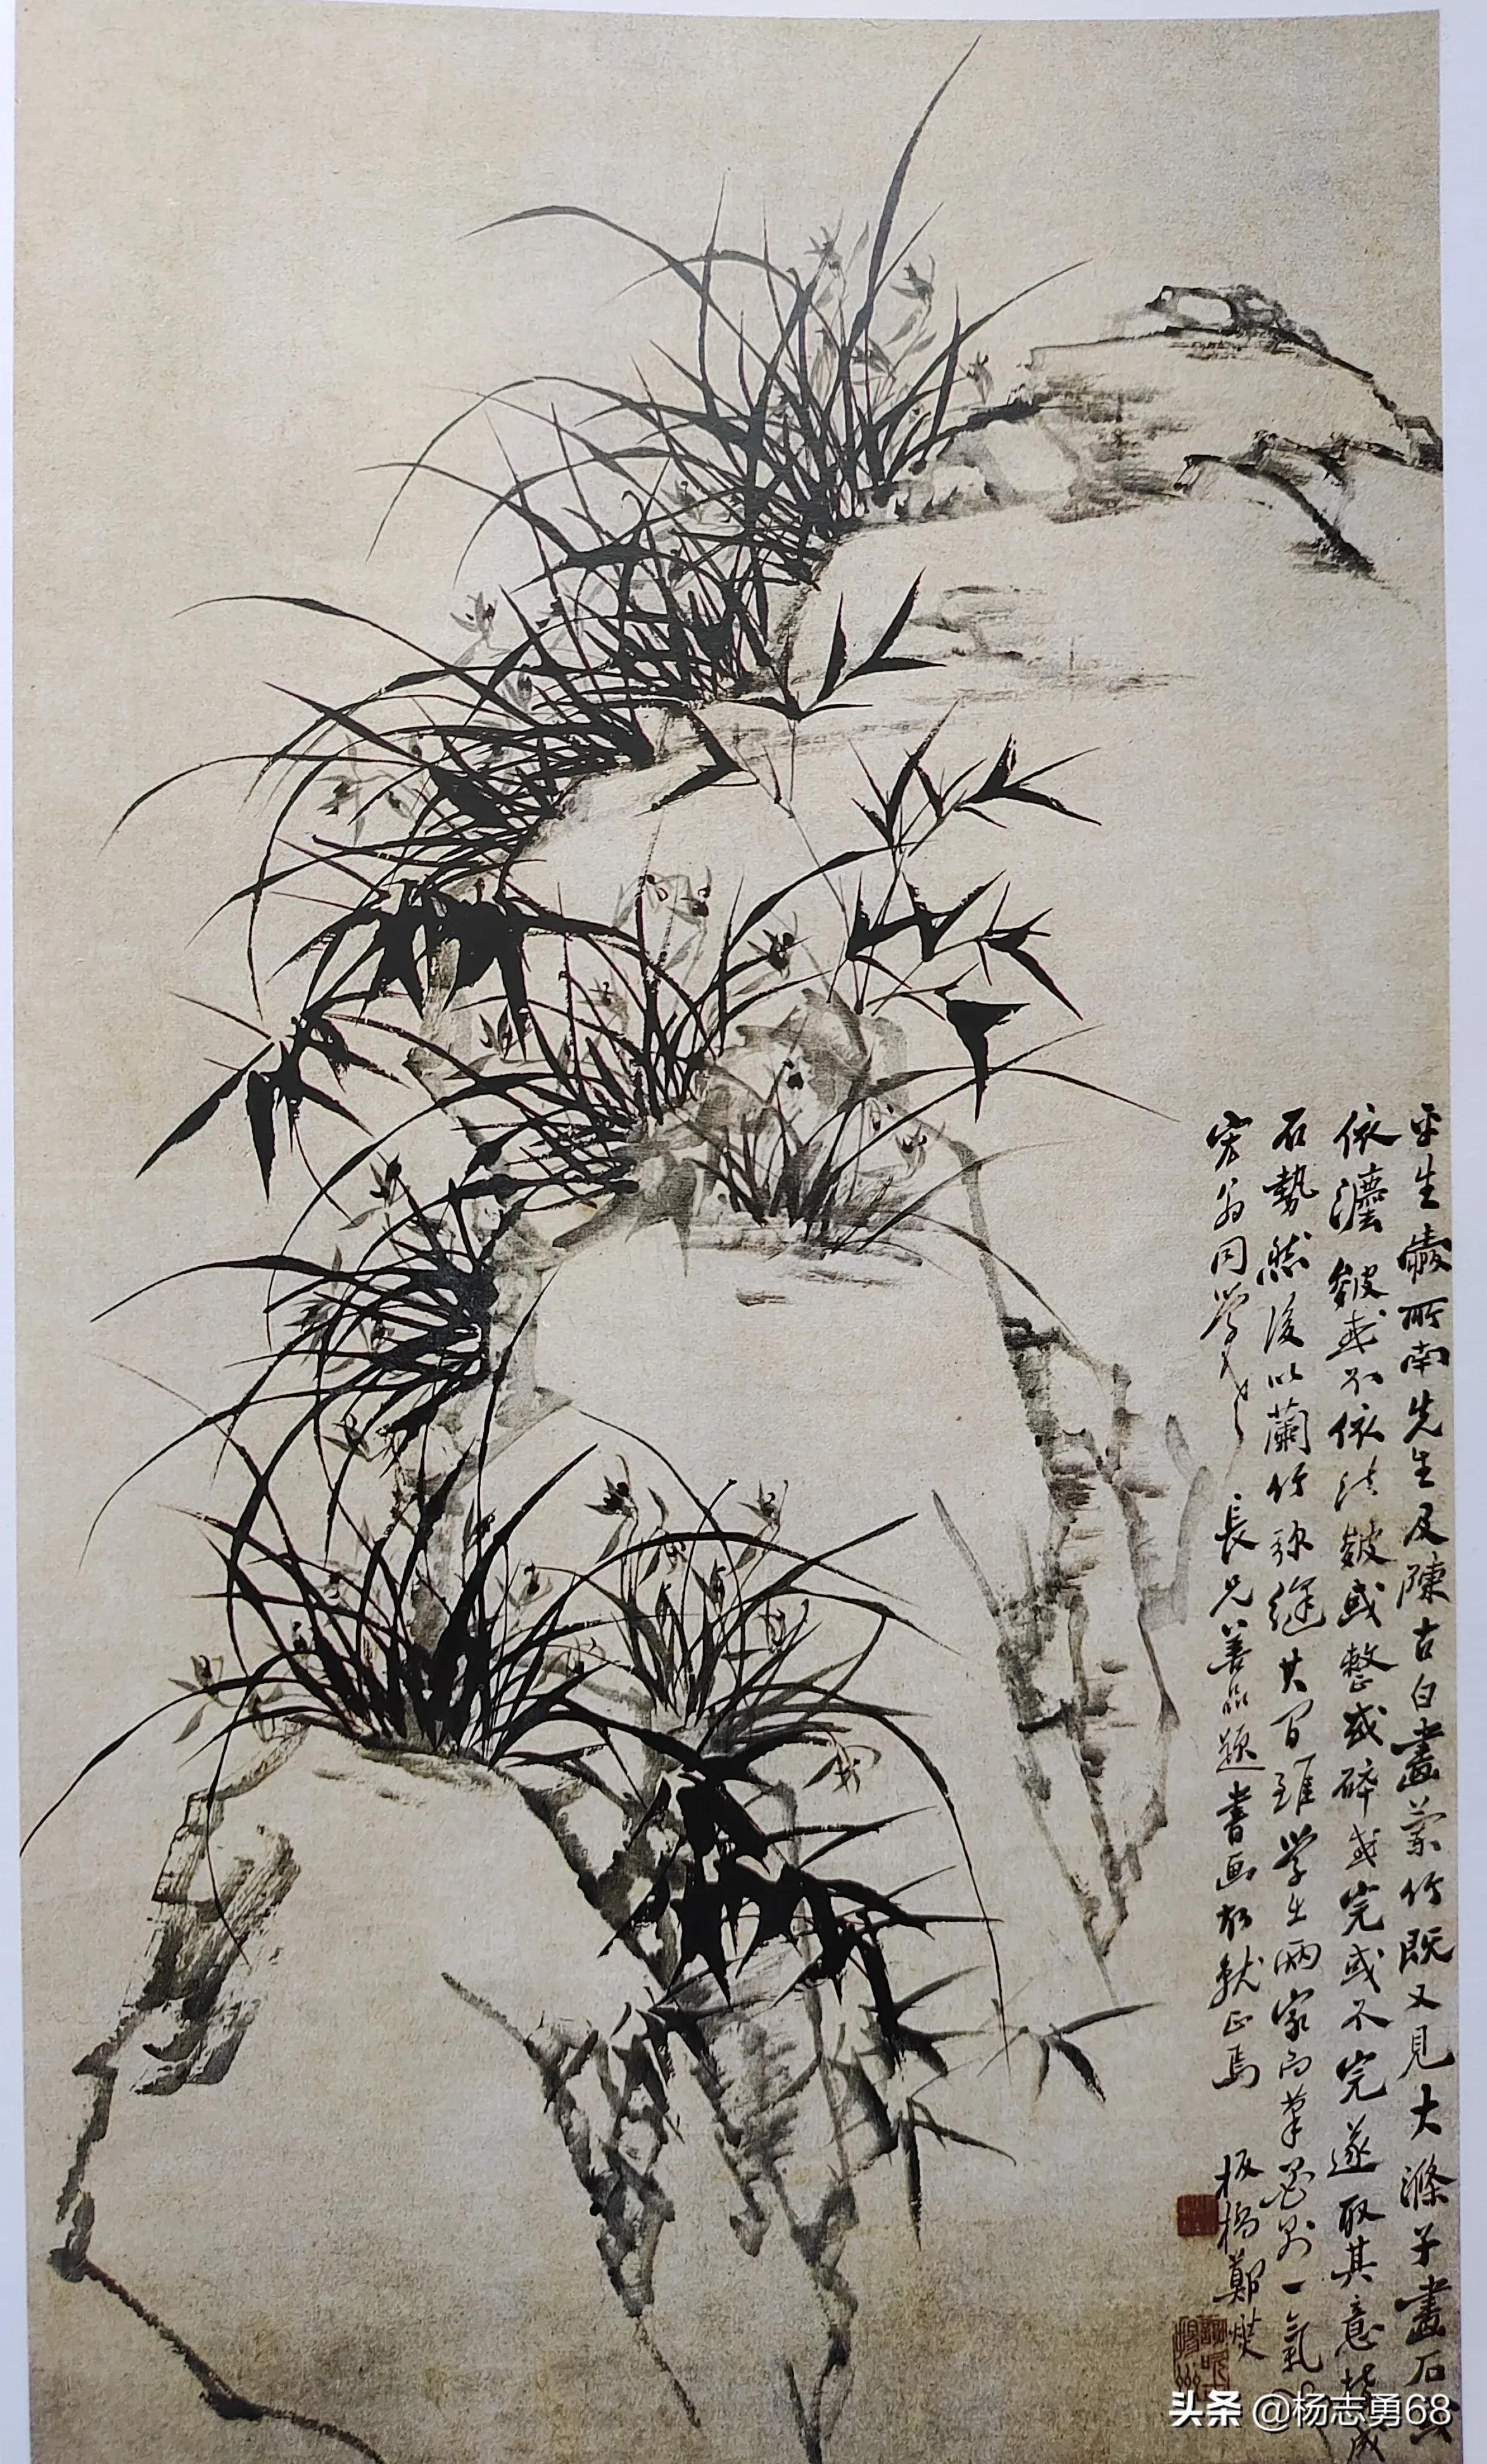 平生愛所南先生及陳古白畫蘭竹既又見大滌子畫石或
依灋皴或不依法皴或整或碎或完或不完遂取其意搆成
石勢然後以蘭竹弥縫其間雖學出兩家而筆墨則一氣也
宏翁同學 長兄善品題書畫故就正焉 板橋鄭燮
头条 @杨志勇68